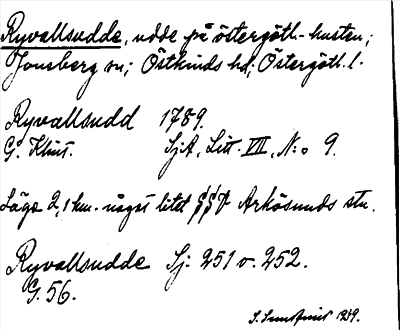 Ryvallsudde, udde på östergöth.-kusten;
Jonsberg sn; Östkinds hd, Östergötl. l.
Ryvallsudd 1789.
G. Klint. SjA, Litt. VII, N:o 9.
Läge 2,1 km. något litet SSV Arkösunds stn.
Ryvallsudde Sj. 251 o. 252.
G. 56.
1939.